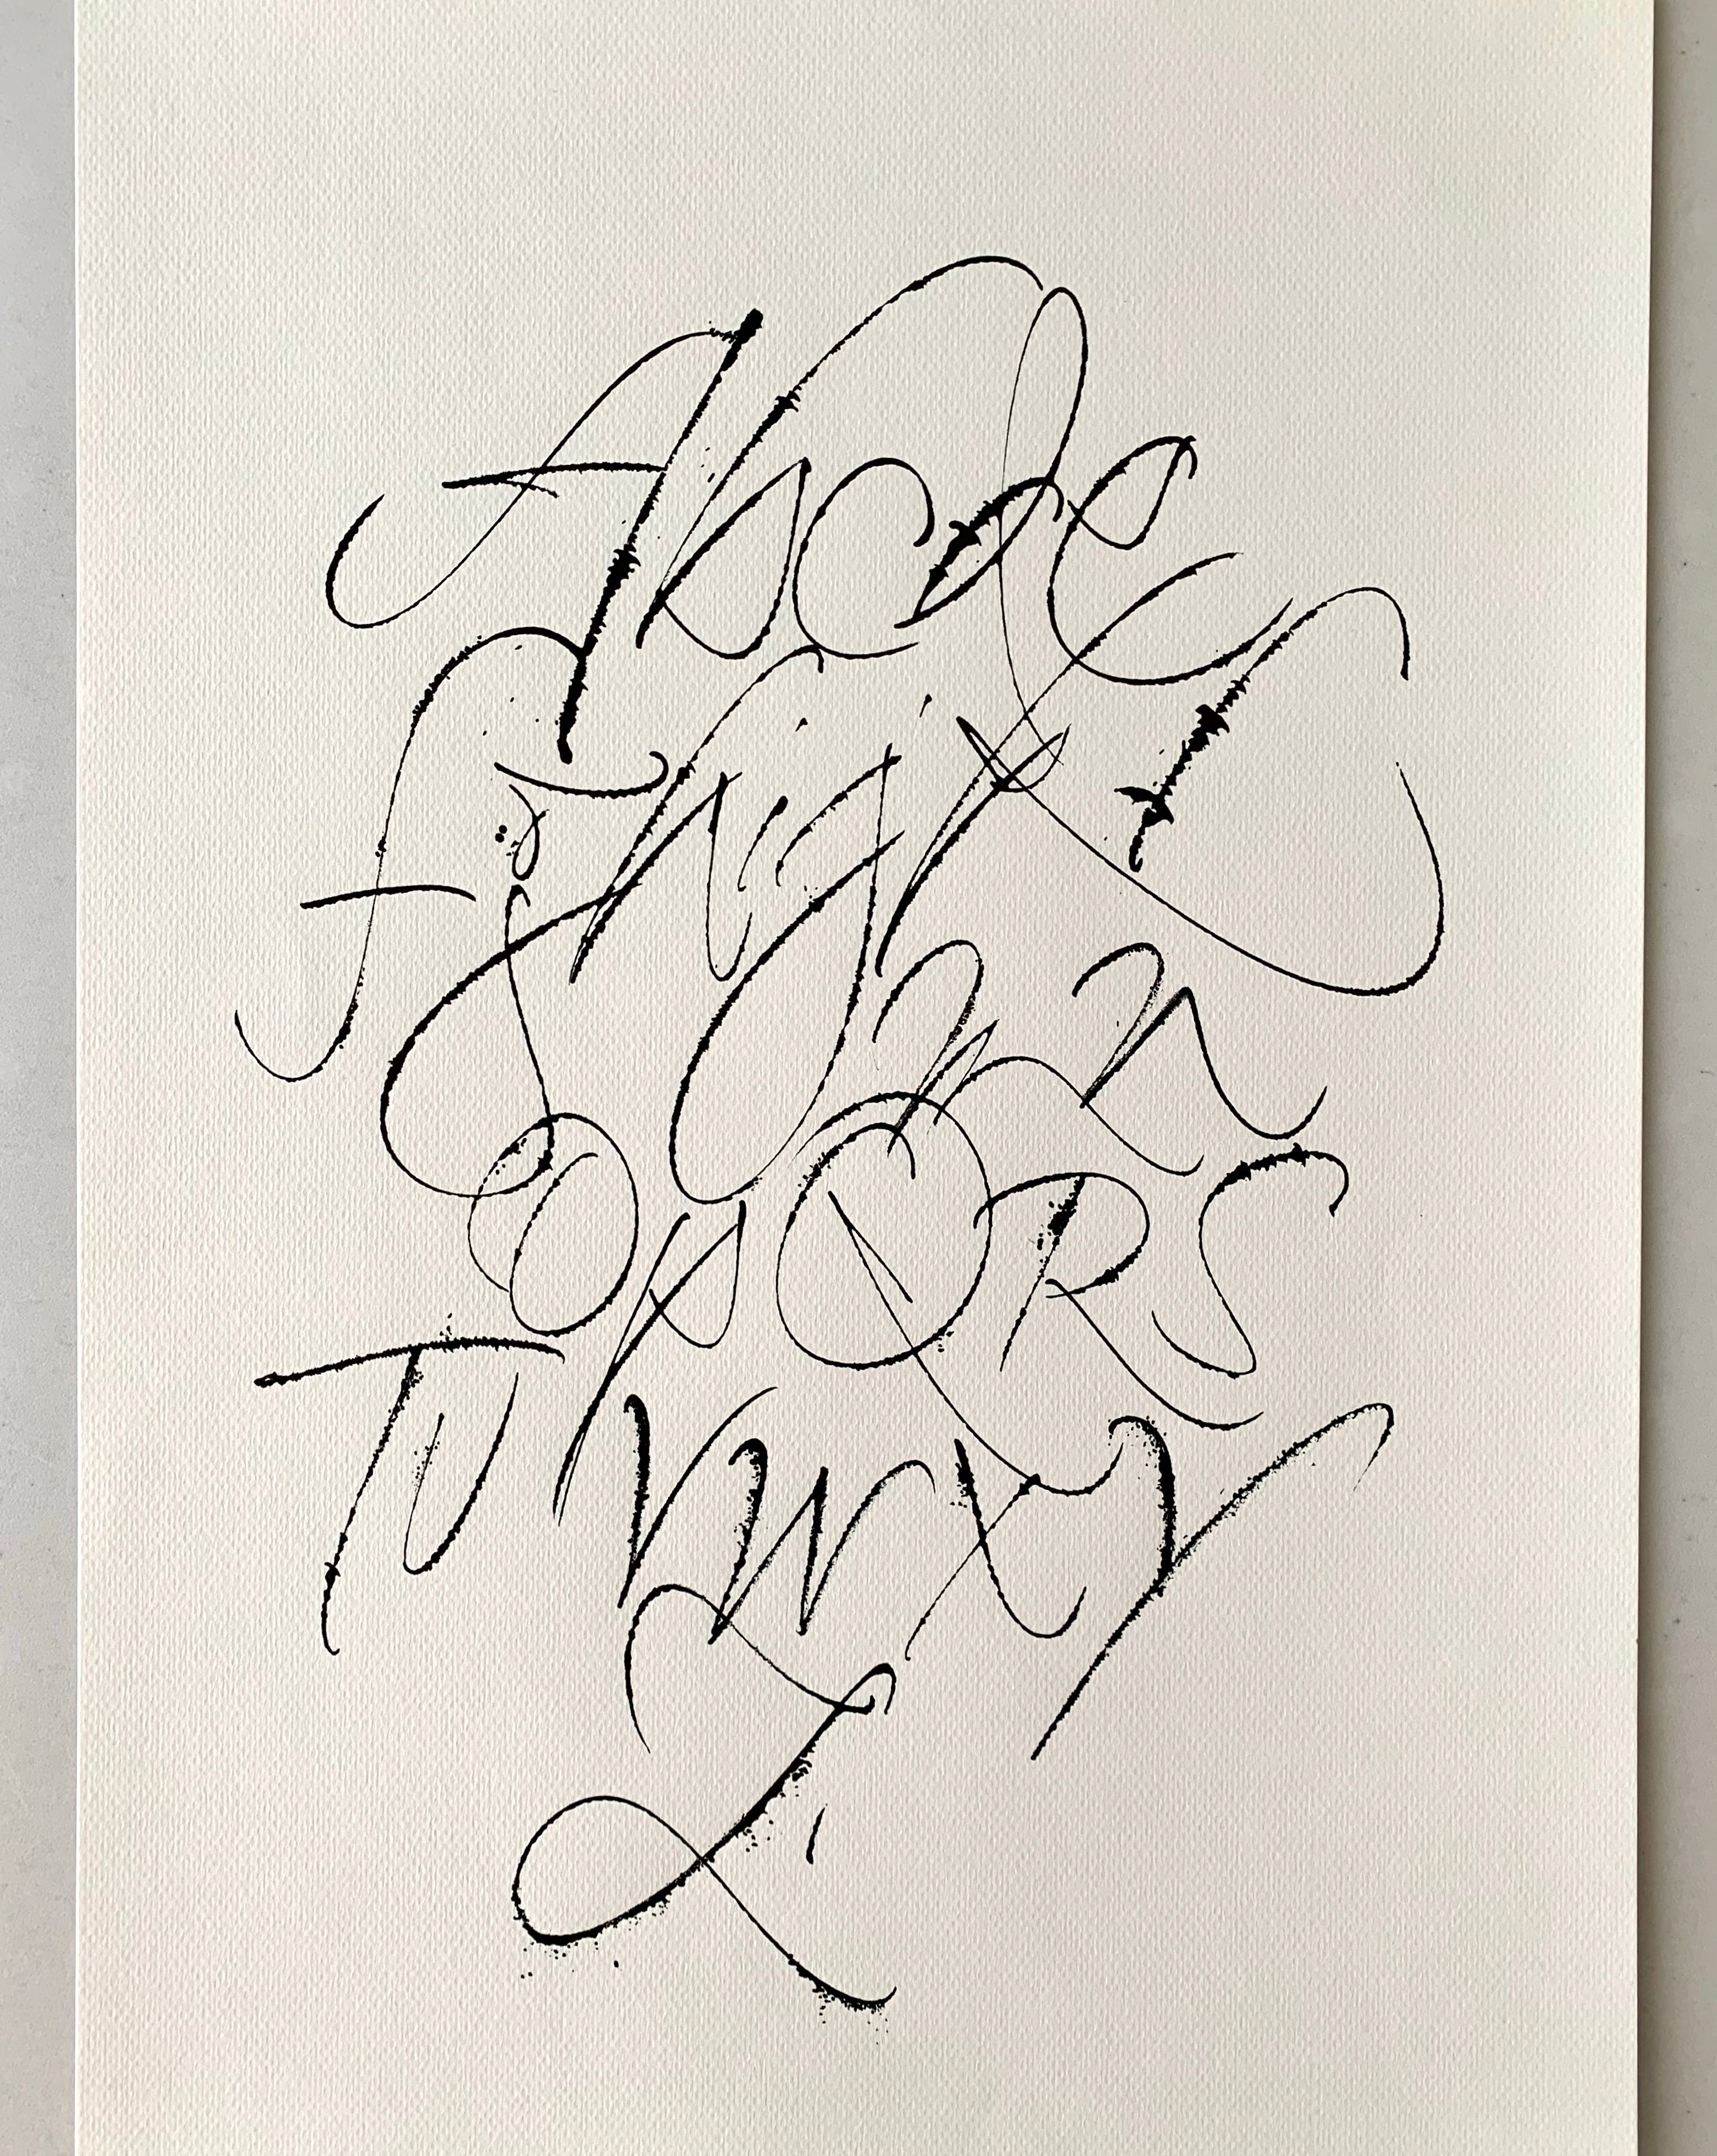 Abcde
fghijkl
mn
opQRS
TUVWXY
Z